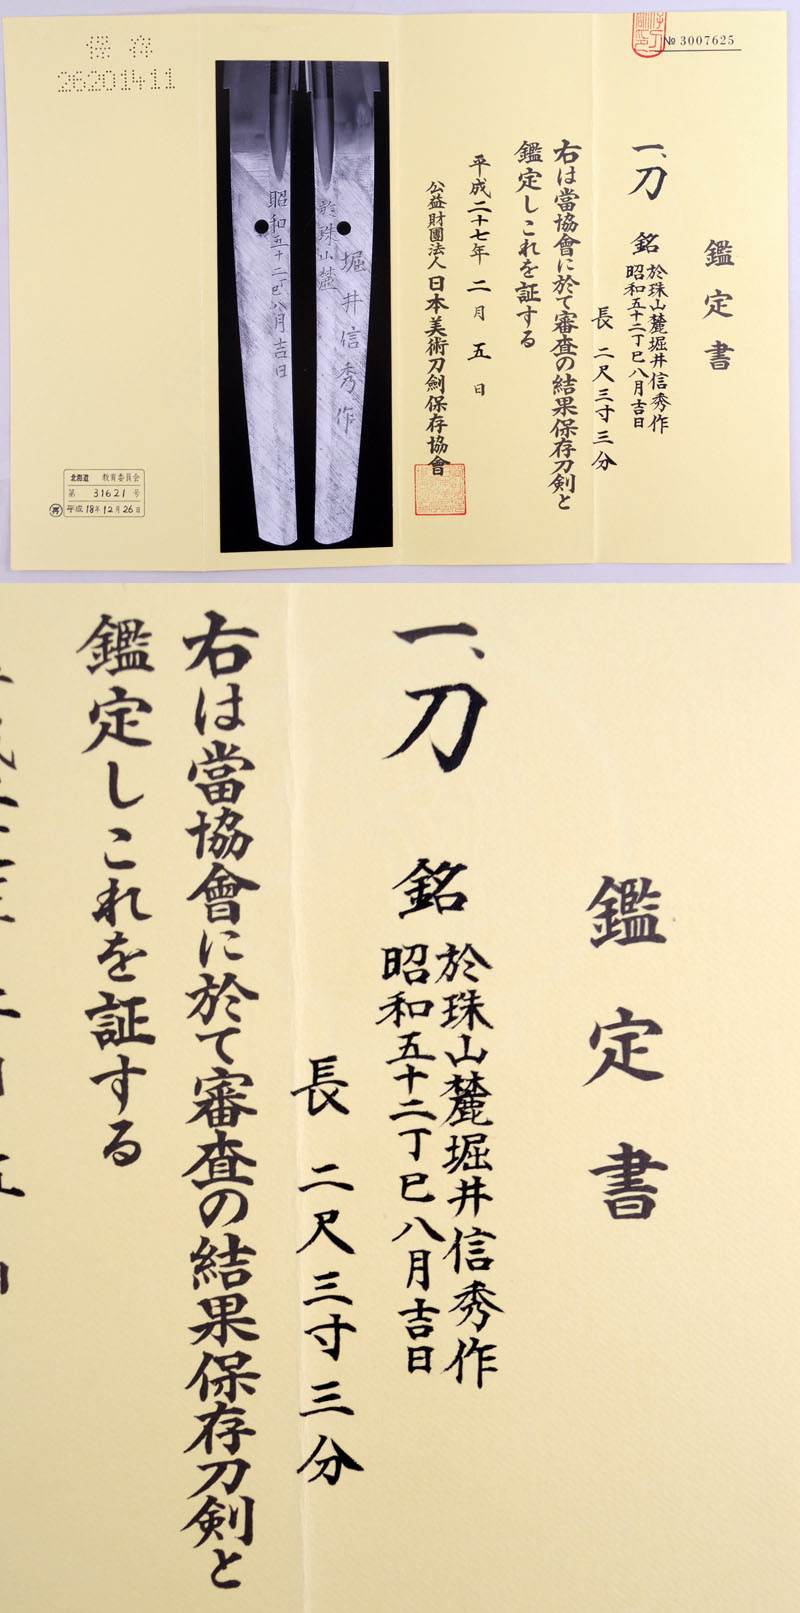 № 3007625
鑑定書
一、刀 銘 於珠山麓堀井信秀作
昭和五十二丁巳八月吉日
長 二尺三寸三分
右は當協會に於て審査の結果保存刀剣と
鑑定しこれを証する
平成二十七年 二月 五日
公益財團法人 日本美術刀劍保存協會
於珠山麓
堀井信秀作
昭和五十二丁巳八月吉日
保存
26201411
北海道 教育委員会
第 31621 号
再 平成18年12月26日
鑑定書
一、刀 銘 於珠山麓堀井信秀作
昭和五十二丁巳八月吉日
長 二尺三寸三分
右は當協會に於て審査の結果保存刀剣と
鑑定しこれを証する